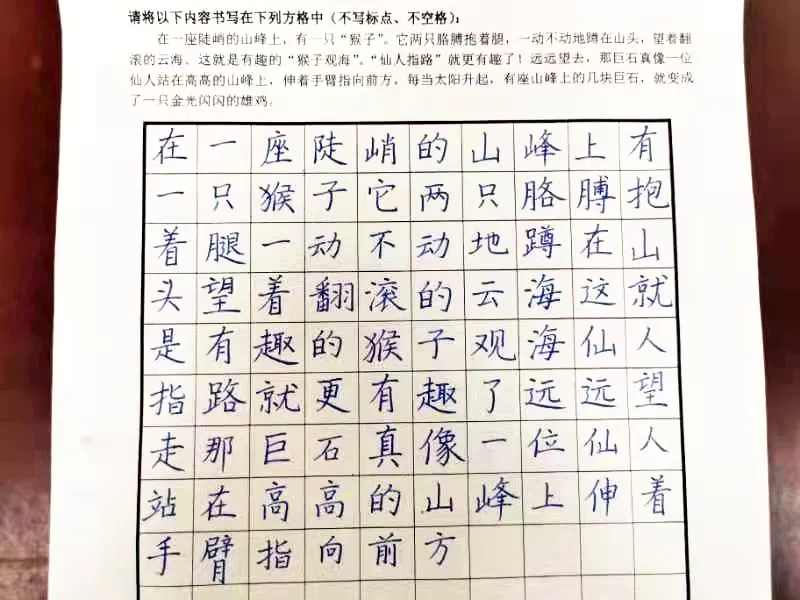 请将以下内容书写在下列方格中（不写标点、不空格）：
在一座陡峭的山峰上，有一只“猴子”。它两只胳膊抱着腿，一动不动地蹲在山头，望着翻
滚的云海。这就是有趣的“猴子观海”。“仙人指路”就更有趣了！远远望去，那巨石真像一位
仙人站在高高的山峰上，伸着手臂指向前方。每当太阳升起，有座山峰上的几块巨石，就变成
了一只金光闪闪的雄鸡。
在一座陡峭的山峰上有
一只猴子它两只胳膊抱
着腿一动不动地蹲在山
头望着翻滚的云海这就
是有趣的猴子观海仙人
指路就更有趣了远远望
走那巨石真像一位仙人
站在高高的山峰上伸着
手臂指向前方